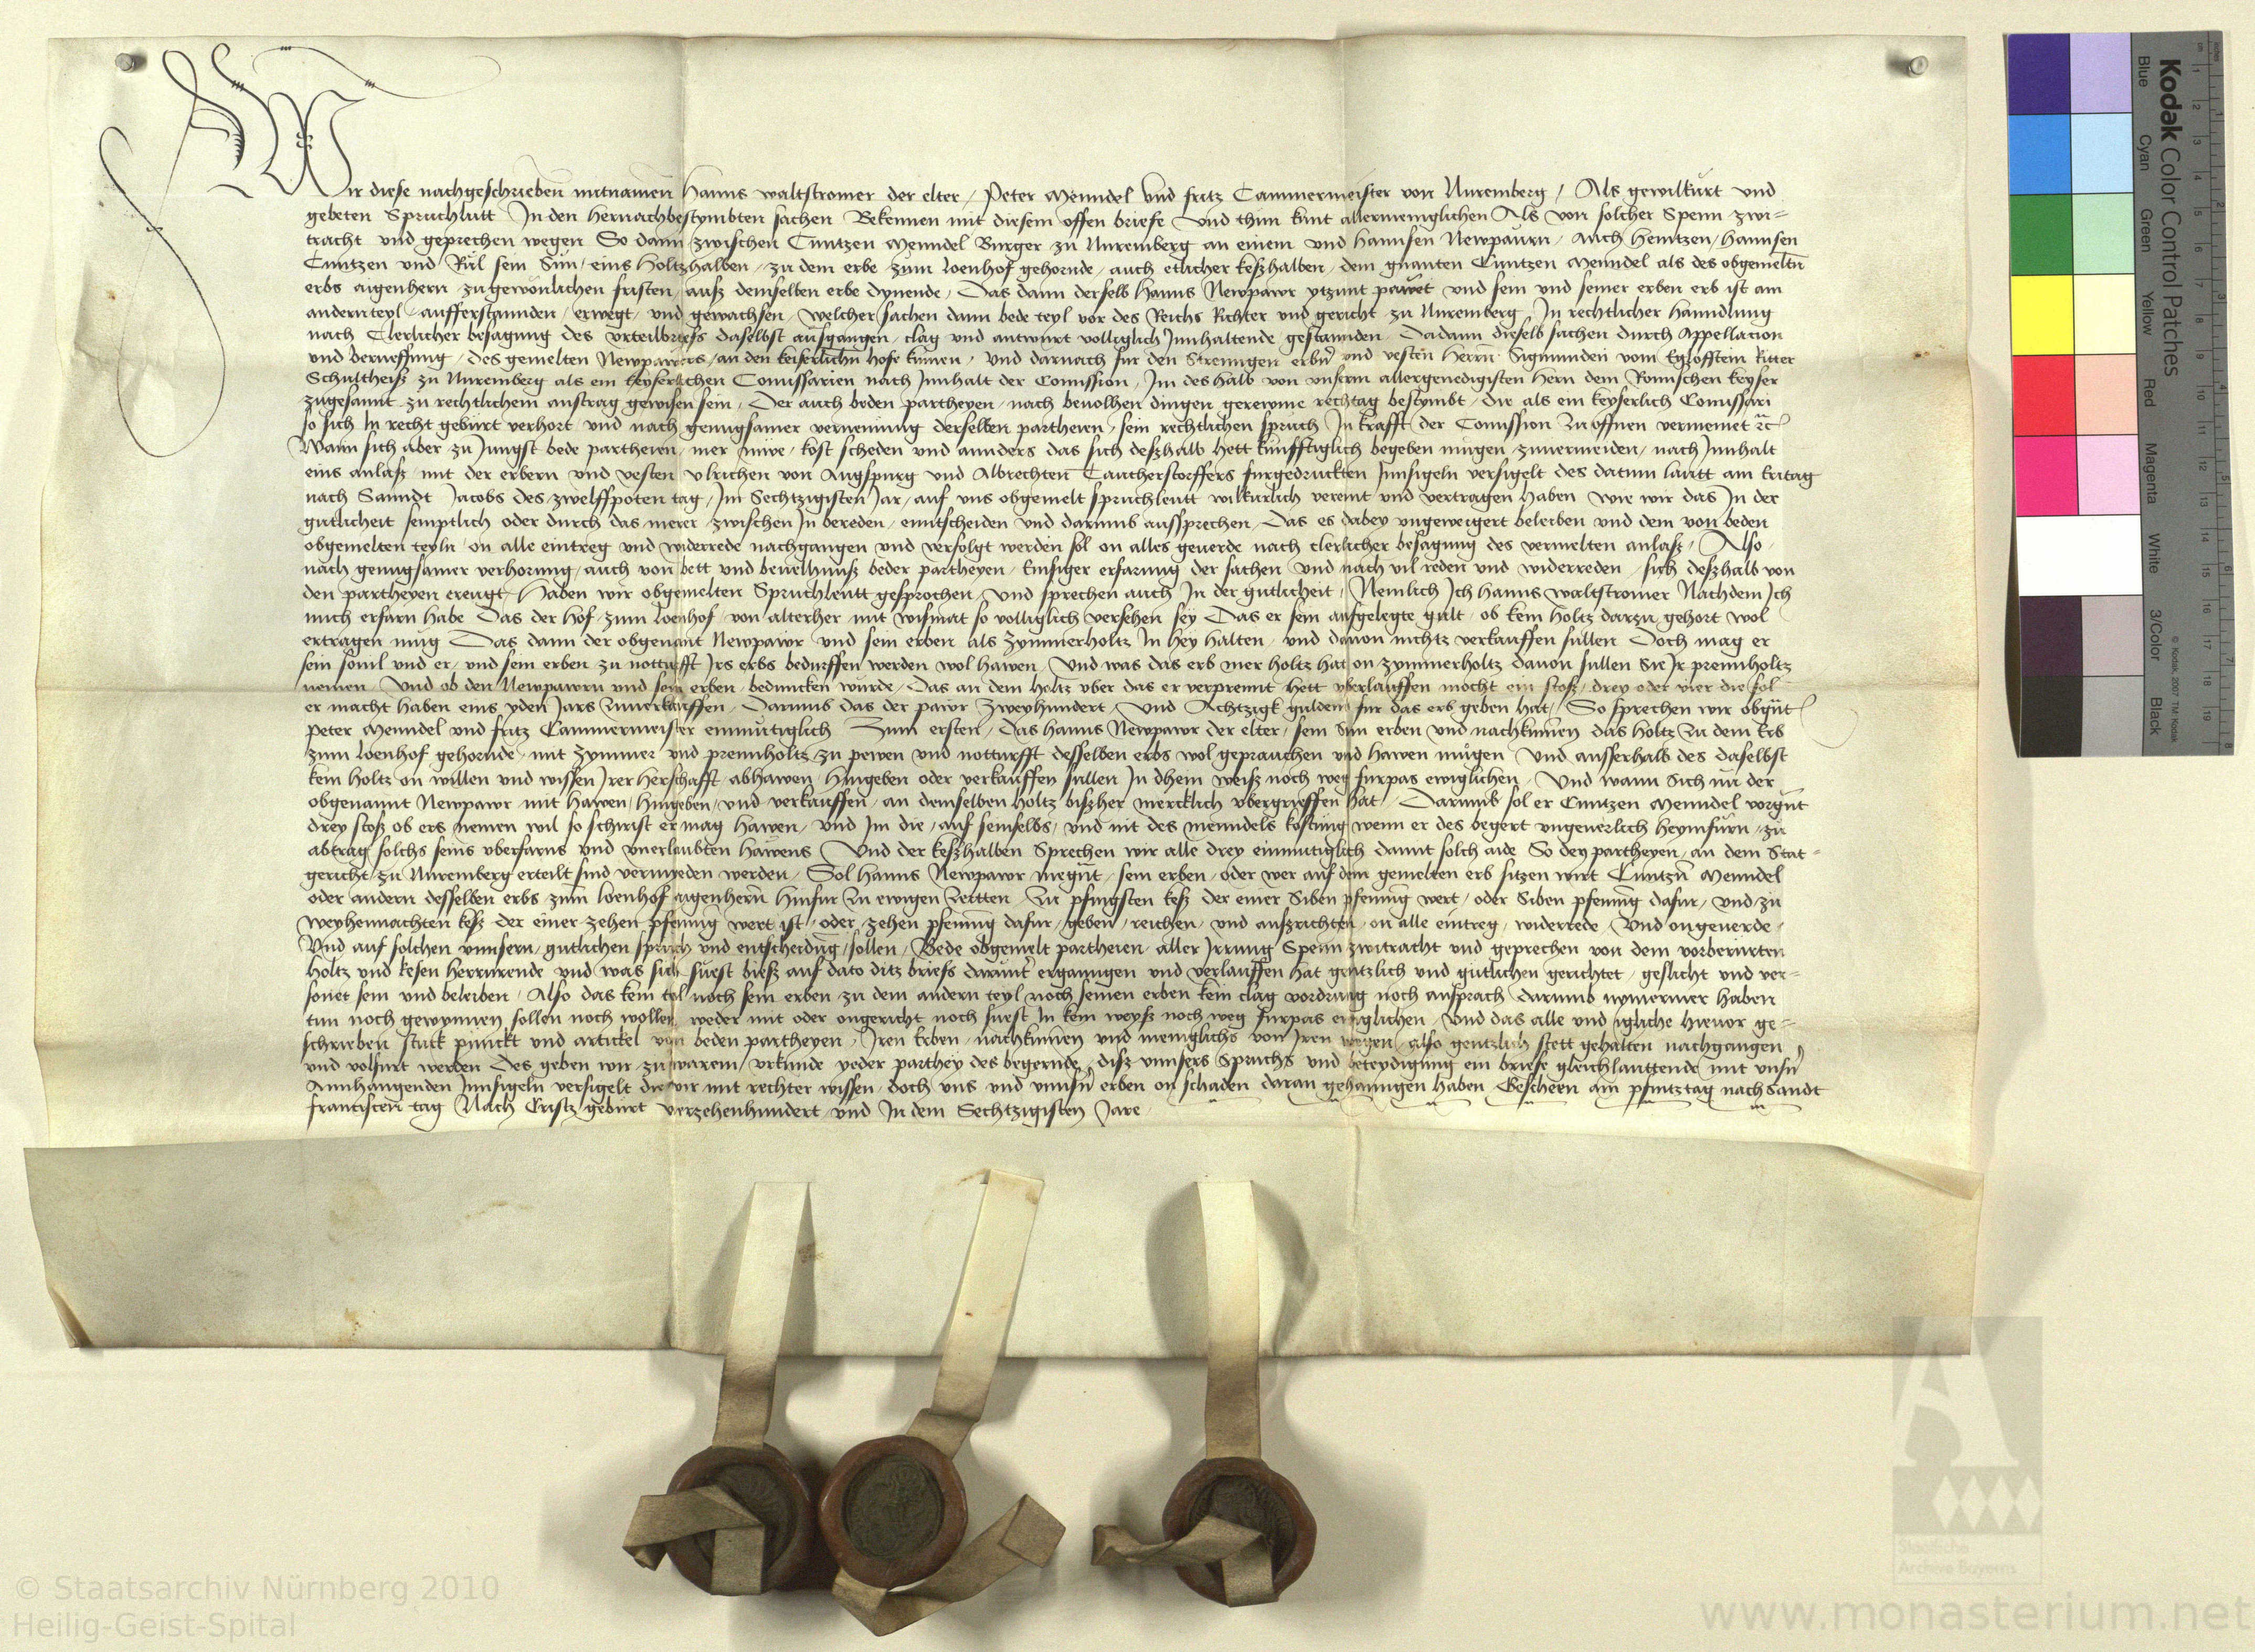 Wir diese nachgeschrieben mitnamen Hanns waltstromer der elter / Peter Menndel vnd fritz Cammermeister von Nuremberg / Als gewilkurt vnd
gebeten Spruchlutt In den hernachbestymbten sachen Bekennen mit diesem offen briefe vnd thun kunt allermeniglichen Als von solcher Spenn zwi=
tracht vnd geprechen wegen So dann zwischen Cuntzen Menndel Burger zu Nuremberg an einem vnd hannsen Newpaurn / Auch heintzen / hannsen
Cuntzen vnd Rul sein Sun / eins holtzhalben / zu dem erbe zum loenhof gehornde / auch etlicher keßhalben / dem gnanten Cuntzen Menndel als des obgemeltn
erbs aigenhern zu gewonlichen fristen / auß demselben erbe dynende / Das dann derselb Hanns Newpawr ytzunt pawet vnd sein vnd seiner erben erb ist am
andernteyl / aufferstannden / erwegt / vnd gewachsen / welcher sachen dann bede teyl vor des Reichs Richter vnd gericht zu Nuremberg / In rechtlicher hanndlung
nach Clerlicher besagung des vrteilbriefs daselbst außgangen / clag vnd antwurt volliglich Innhaltende / gestannden / Dadann dieselb sachen durch Appellacion
vnd beruffung / des gemelten Newpawers / an den keiserlichn hofe kumen / vnd darnach fur den Strenngen erbn vnd vesten herrn Sigmunden vom Eglofstein Ritter
Schultheiß zu Nuremberg als ein keyserlichen Comissarien nach Innhalt der Comission / Im deshalb von vnserm allergenedigisten hern dem Romischen keyser
zugesannt zu rechtlichem austrag gewisen sein / Der auch beden partheyen / nach beuolhen dingen gerewme rechtag bestymbt / die als ein keyserlich Comissari
so sich In recht geburt verhort / vnd nach genugsamer vernemung derselben partheien / sein rechtlichen spruch In krafft der Comission zu offnen vermeinet rc
Wann sich aber zu Jungst bede partheien / mer müe / kost scheden vnd annders das sich deßhalb hett kunfftiglich begeben mugen / zuuermeiden / nach Innhalt
eins anlaß / mit der erbern vnd vesten vlrichen von Augspurg vnd Albrechten Caucherstorffers furgedruckten Innsigeln versigelt des datum lautt am Eritag
nach Sanndt Jacobs des zwelffpoten tag / Im Sechtzigisten Jar / auf vns obgemelt spruchleutt wilkurlich vereint vnd vertragen haben wie wir das In der
gutlicheit semptlich oder durch das merer zwischen In bereden / enntscheiden vnd darumb aussprechen / Das es dabey vngeweigert beleiben vnd dem von beden
obgemelten teyln / on alle eintreg vnd widerrede nachgangen vnd verfolgt werden sol on alles geuerde nach clerlicher besagung des vermelten anlaß / Also /
nach genugsamer verhorung / auch von bett vnd beuelhnuß beder partheyen / Einsiger erfarung der sachen vnd nach vil reden vnd widerreden / sich deßhalb von
den partheyen ereugt / Haben wir obgemelten Spruchleutt gesprochen / vnd sprechen auch In der gutlicheit / Nemlich Ich Hanns waltstromer Nachdem Ich
mich erfarn habe Das der hof zum loenhof / von alterher mit wismat so volliglich versehen sey Das er sein aufgelegte gult / ob kein holtz darzu gehort wol
ertragen mug Das dann der obgenant Newpawr vnd sein erben als zymmerholtz In hey halten / vnd dauon nichtz verkauffen sullen Doch mag er
sein souil vnd er / vnd sein erben zu notturfft Irs erbs bedurffen werden wol hawen / Vnd was das erb mer holtz hat on zymmerholtz dauon sullen Sie Ir prennholtz
nemen / Vnd ob den Newpawrn vnd sein erben / beduncken wurde / Das an dem holtz vber das er verprennt hett vberlauffen mocht ein stoß / drey oder vier die sol
er macht haben eins yden Jars zuuerkauffen / Darumb das der pawr Zweyhundert / vnd Achtzigk gulden fur das erb geben hat / So sprechen wir obgnt
Peter Menndel vnd fritz Cammermeister einmutiglich Zum ersten / Das hanns Newpawr der elter / sein Sun erben vnd nachkumen das holtz zu dem Erb
zum loenhof gehornde / mit Zymmer vnd prennholtz zu pewen vnd notturfft desselben erbs wol geprauchen vnd hawen mugen Vnd ausserhalb des daselbst
kein holtz on willen vnd wissen Irer herschafft / abhawen / hingeben oder verkauffen sullen In dhein weiß noch weg furpas ewiglichen / Vnd wann Sich nu der
obgenannt Newpawr mit hawen / hingeben / vnd verkauffen / an demselben holtz bißher mercklich vbergrieffen hat / Darumb sol er Cuntzen Menndel vorgnt
drey stoß ob ers nemen wil so schirist er mag hawen / vnd Im die / auf seinselbs / vnd nit des menndels kostung wenn er des begert vngeuerlich heymfurn / zu
abtrag solchs seins vberfarns vnd vnerlaubten hawens / Vnd der keßhalben Sprechen wir alle drey einmutiglich damit solch aide So den partheyen / an dem Stat=
gericht zu Nuremberg erteilt sind vermyeden werden / Sol hanns Newpawr megnt / sein erben / oder wer auf dem gemelten erb sitzen wirt Cuntzn Menndel
oder andern desselben erbs zum loenhof aigenhern hinfur zu ewigen zeitten zu pfingsten keß der einer Siben pfennig wert / oder Siben pfennig dafur / vnd zu
weyhennachten keß der einer zehen pfennig wert ist / oder zehen pfennig dafur / geben / reichen / vnd außrichten / on alle eintreg / widerrede / Vnd ongeuerde /
Vnd auf solchen vnnsern / gutlichen spruch vnd entscheidung / sollen / Bede obgemelt partheien / aller Irrung Spenn zwitracht vnd geprechen von dem vorberurten
holtz vnd kesen herrurende vnd was sich sust bieß auf dato ditz briefs darunt ergangen vnd verlauffen hat gentzlich vnd gutlichen gerichtet / geslicht vnd ver=
sonet sein vnd beleiben / Also das kein teyl noch sein erben zu dem andern teyl noch seinen erben kein clag vordrung noch ansprach darumb nymermer haben
tun noch gewynnen sollen noch wollen weder mit oder ongericht noch sust In kein weyß noch weg furpas ewiglichen / Vnd das alle vnd igliche hieuor ge=
schrieben stuck punckt vnd artickel von beden partheyen / Iren Erben / nachkumen vnd meniglichs von Iren wegen / also gentzlich stett gehalten nachgangen
vnd volfurt werden Des geben wir zu warem / vrkunde yeder parthey des begernde / diß vnnsers Spruchs vnd beteydigung ein briefe gleichlauttende mit vnsn
Annhangenden Innsigeln versigelt die wir mit rechter wissen / doch vns vnd vnnsn erben on schaden daran gehanngen haben Gescheen am pfintztag nach Sandt
francisten tag Nach Cristz geburt vierzehenhundert / vnd In dem Sechtzigisten Jare
Kodak Color Control Patches
Blue Cyan Green Yellow Red Magenta White 3/Color Black
© Kodak, 2007 TM Kodak
© Staatsarchiv Nürnberg 2010
Heilig-Geist-Spital
Staatliche
Archive Bayerns
www.monasterium.net